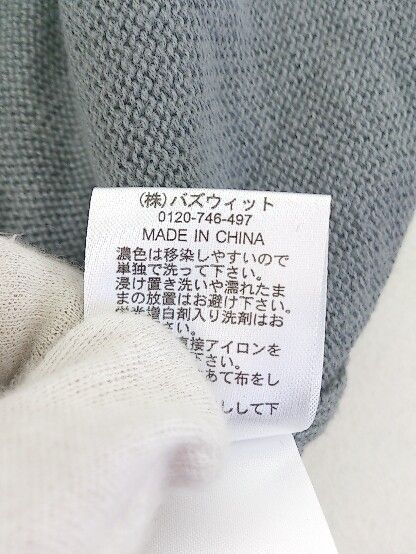 (株)バズウィット
0120-746-497
MADE IN CHINA
濃色は移染しやすいので
単独で洗って下さい。
浸け置き洗いや濡れたま
まの放置はお避け下さい。
蛍光増白剤入り洗剤はお
さい。
直接アイロンを
下さい。
あて布をし
しして下